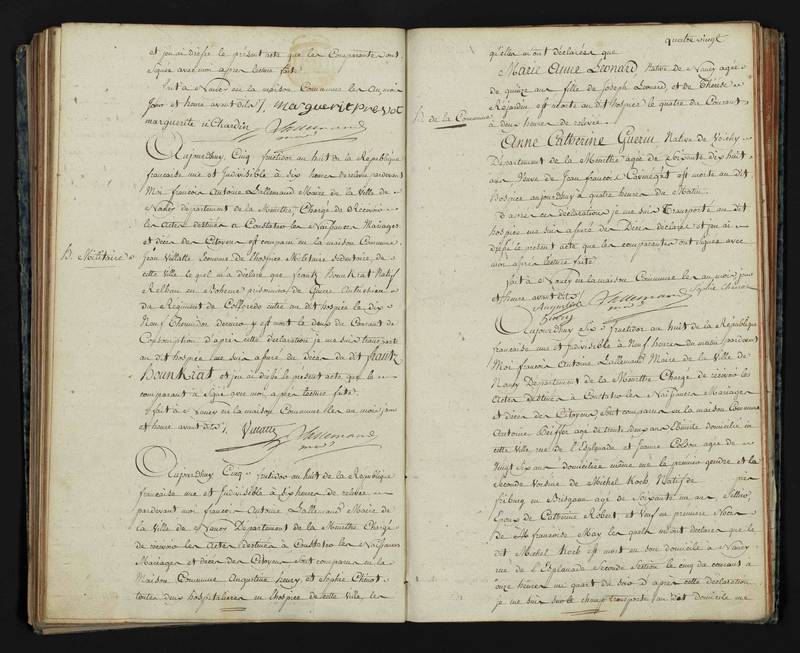 et j'en ai dressé le présent acte que les Comparants ont
signé avec moi après lecture faite
fait à Nancy en la maison Commune les an mois
jour et heure avant dits ./. marguerit prevot
marguerite Chardin Lallemand
Aujourdhuy Cinq fructidor an huit de la République
française une et Indivisible à six heures de relevée pardevant
Moi françois Antoine Lallemand Maire de la Ville de
Nancy Département de la Meurthe, Chargé de Recevoir
les Actes destinés a Constater les Naissances Mariages
et décès des Citoyens est comparu en la maison Commune
jean Villatte Econome de l'hospice Militaire sédentaire de
H. Militaire
cette ville le quel m'a déclaré que frantz Bounkrat Natif
en Boheme prisonnier de Guerre Autrichien
du Régiment de Colloredo entré au dit hospice le dix
Neuf Thermidor dernier y est mort le deux du Courant de
Consomption d'après cette déclaration je me suis transporté
au dit hospice me suis assuré du Décès du dit frantz
Bounkrat et j'en ai dressé le présent acte que le
comparant a signé avec moi après lecture faite
fait à Nancy en la maison Commune les an mois jour
et heure avant dits ./. Villatte Lallemand
Aujourdhuy Cinq fructidor an huit de la République
française une et Indivisible à six heures de relevée
pardevant moi françois Antoine Lallemand Maire de
la Ville de Nancy Département de la Meurthe Chargé
de recevoir les Actes destinés à Constater les Naissances
Mariages et décès des Citoyens sont comparus en la
Maison Commune Augustine henry et Sophie Chenot
toutes deux hospitalières en l'hospice de cette Ville, les
quatre vingt
qu'elles m'ont déclarées que
Marie Anne Leonard, Native de Nancy agée
de quinze ans fille de Joseph Leonard, et de Thérese
Rejardin est morte au dit hospice le quatre du Courant
H. de la Commune
à deux heures de relevée
Anne Catherine Guerin Native de Voichy
Département de la Meurthe agée de Soixante dix huit
ans, Veuve de Jean francois est morte au dit
hospice aujourdhuy à quatre heures du Matin
D'après ces déclarations je me suis Transporté au dit
hospice me suis assuré des Décès déclarés et j'en ai
dressé le présent acte que les comparantes ont signées avec
moi après lecture faite
fait à Nancy en la maison Commune les an mois jour
et heure avant dits Sophie Chenot
Augustine Lallemand
henry
Aujourdhuy Six fructidor an huit de la République
française une et Indivisible à Neuf heures du matin pardevant
Moi francois Antoine Lallemand Maire de la Ville de
Nancy Département de la Meurthe Chargé de recevoir les
Actes destinés à Constater les Naissances Mariages
et décès des Citoyens, sont comparus en la maison Commune
Antoine Peiffer agé de trente deux ans Ebéniste domicilié en
cette Ville rue de l'Esplanade et Jeanne Colson agée de
Vingt six ans domiciliée même rue le premier gendre et la
Seconde Voisine de Michel Koch Natif de près
fribourg en Brisgaw agé de Soixante un ans, Sellier,
Epoux de Catherine Robert et Veuf en premiere Noces
de françoise May les quels m'ont déclarer que le
dit Michel Koch est mort en son domicile à Nancy
rue de l'Esplanade Seconde Section le cinq du courant à
onze heures un quart du soir D'après cette déclaration
je me suis sur le champ transporté au dit domicile me